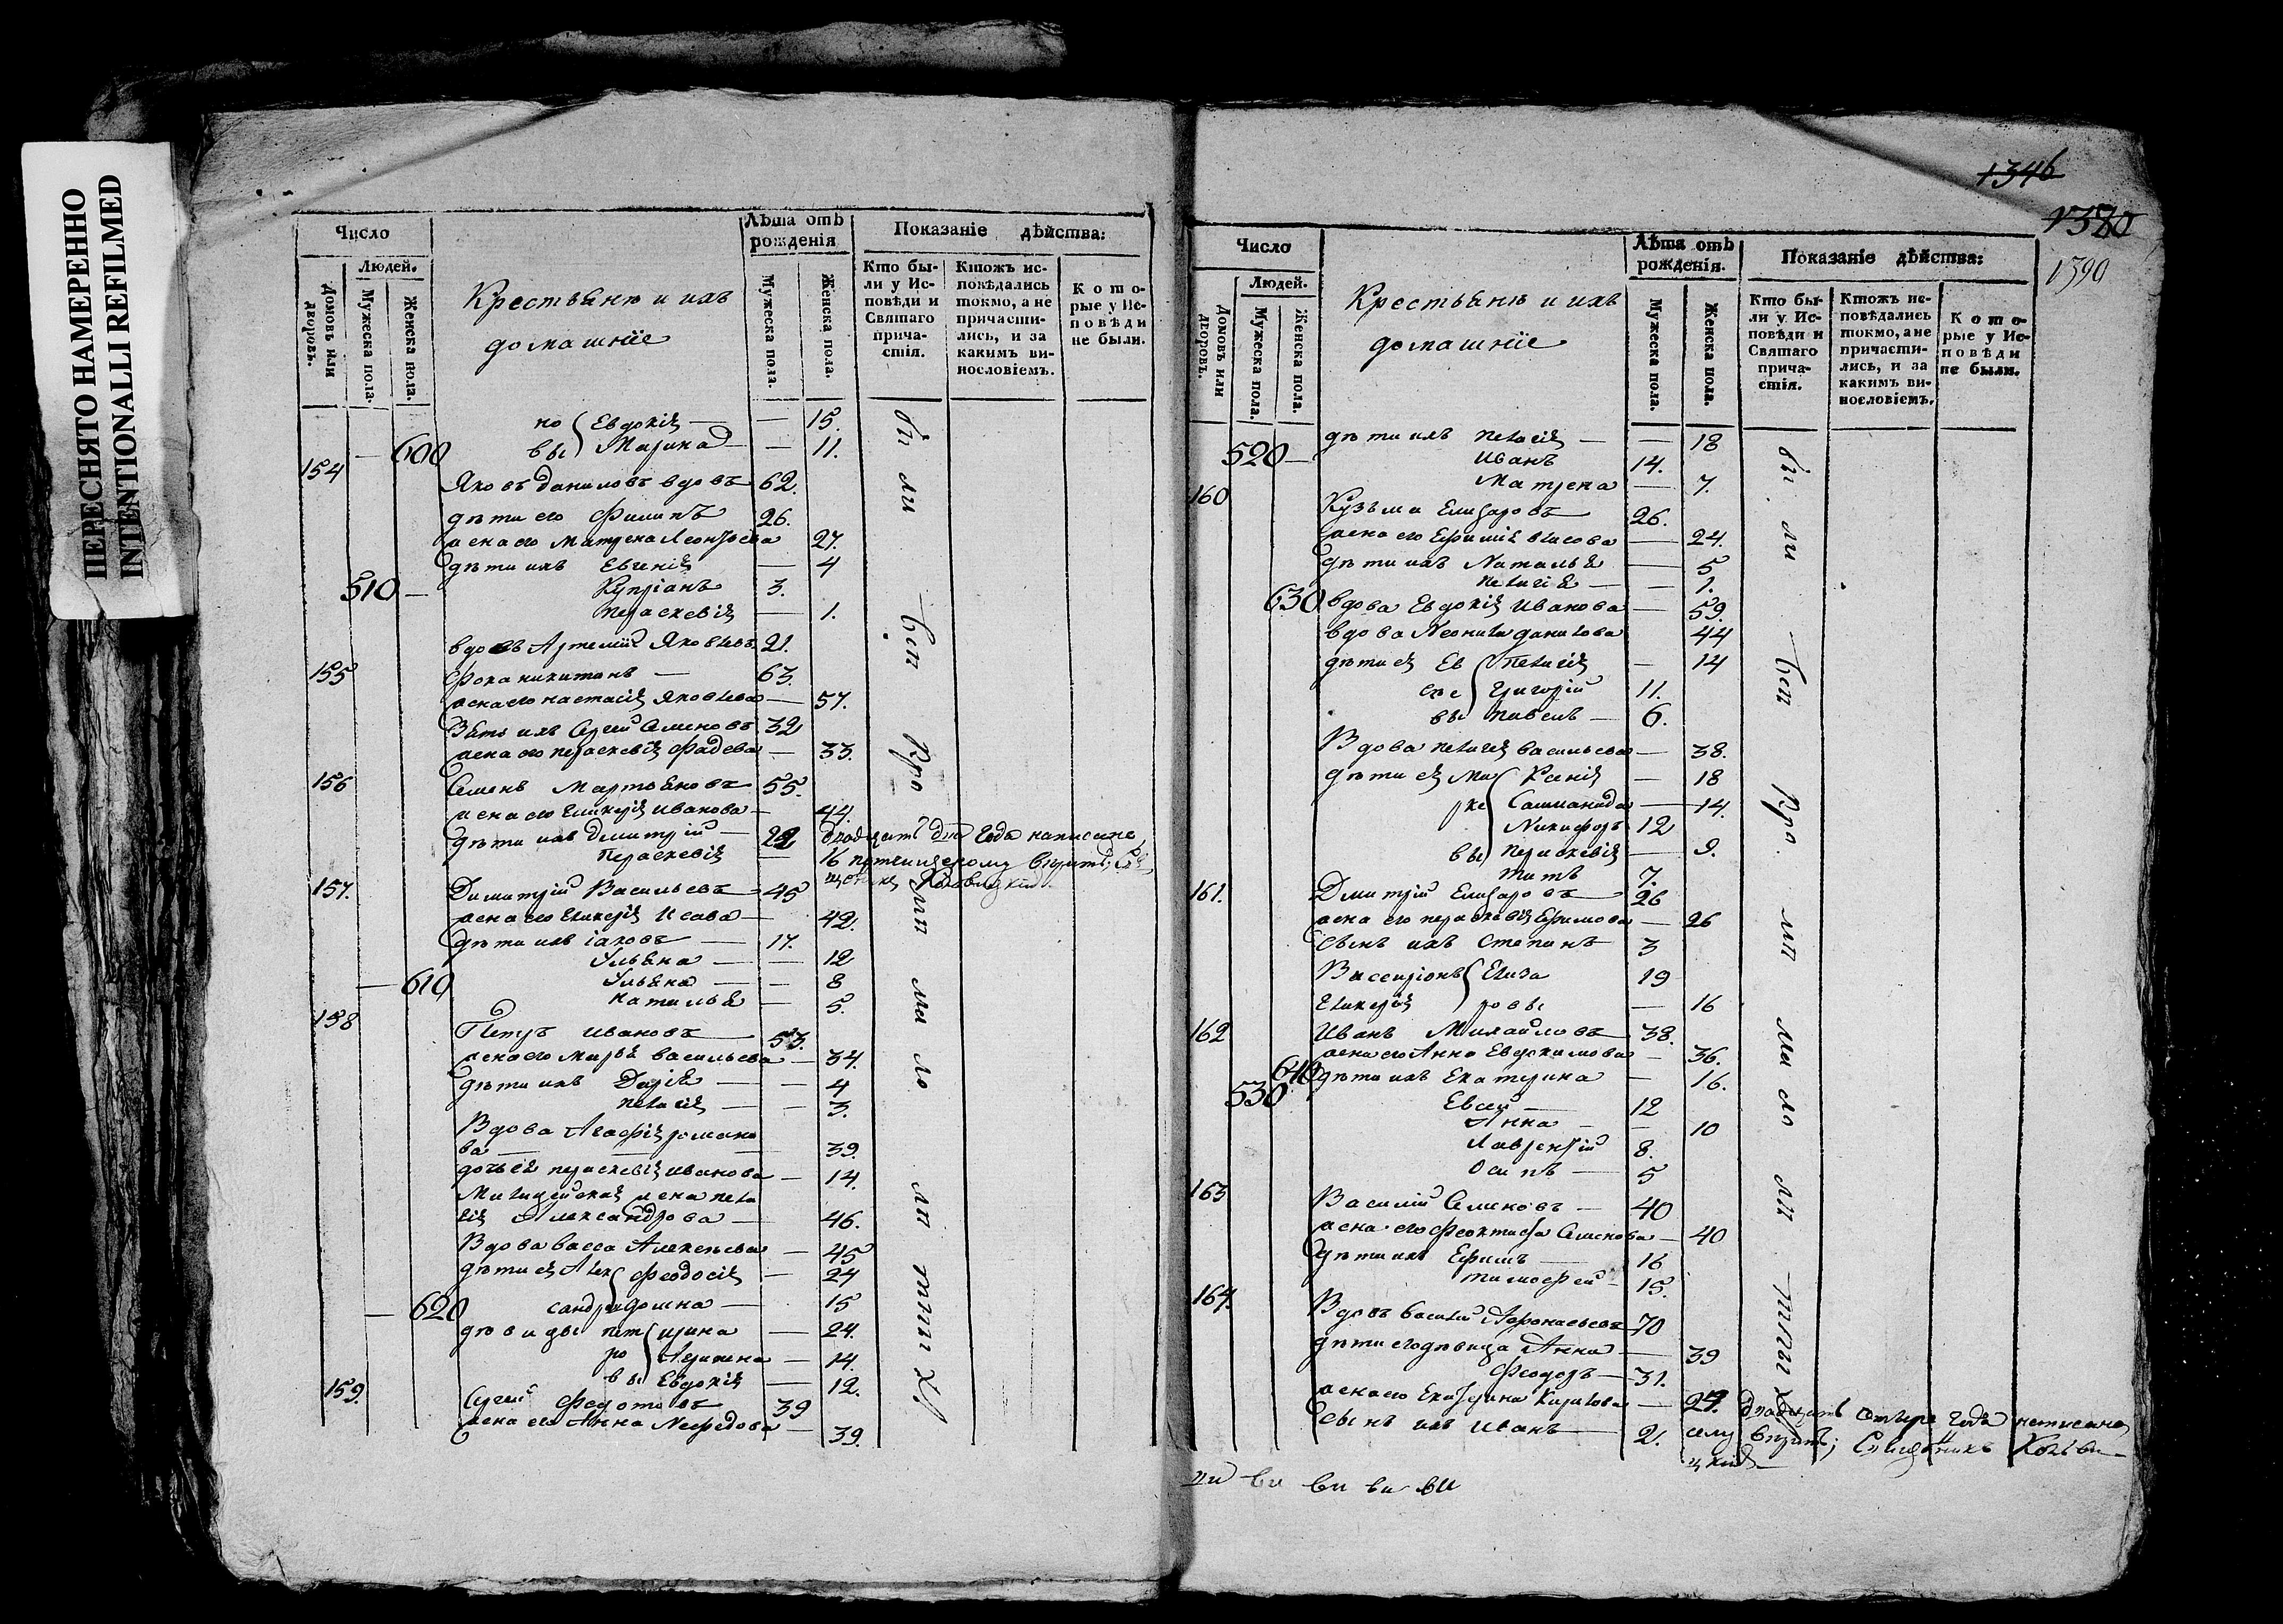 ПЕРЕСНЯТО НАМЕРЕННО
INTENTIONALLI REFILMED
Число
Людей.
Домовъ или дворовъ.
Мужеска пола.
Женска пола.
Крестьянѣ и ихъ
домашніе
Лѣта отъ рожденія
Мужеска пола.
Женска пола.
Показаніе дѣйства:
Кто бы-
ли у Ис-
повѣди и
Святаго
прича-
стія.
Ктожъ ис-
повѣдались
токмо, а не
причасти-
лись, и за
какимъ ви-
нословіемъ.
Кото-
рые у Ис-
повѣди
не были.
но Евдокія — — 15.
600 вы Марина — — 11.
154 Яковъ Даниловъ вдовъ 62.
дѣти его Филипъ 26.
жена его Матрена Леонтьева 27.
дѣти ихъ Евгенія — 4
510 — Купріанъ 3.
Параскевія — 1.
вдовъ Артемій Яковлевъ 21.
155 Фока Никитинъ — 63.
жена его Настасія Яковлева — 57.
Зять ихъ Сергей Семеновъ 32
жена его Параскевія Фадева — 33.
156 Семенъ Мартьяновъ 55.
жена его Гликерія Иванова — 44.
дѣти ихъ Дмитрій — 22 двадцать два года написано
Параскевія — 16
157. Димитрій Васильевъ 45
жена его Гликерія Исава — 42.
дѣти ихъ Іаковъ — 17.
Ульяна — — 12
610 Ульяна — — 8
Наталья — 5.
158 Петръ Ивановъ 53.
жена его Марья Васильева — 34.
дѣти ихъ Дарія — — 4
Пелагія — — 3.
Вдова Агафія Романо
ва — — — 39.
дочь ея Параскевія Иванова — 14.
Милицейская жена Пела
гія Александрова — 46.
Вдова Васса Алексѣева — 45
дѣти ея Алек Феодосія — 24
620 санд Домна — 15
дѣвицы пет Ирина — 24.
ро Акулина — 14.
вы Евдокія — 12.
159. Сергей Федотовъ 39
жена его Анна Нефедова — 39.
бы
ли
Всп
Кро
ми
ло
ли
ттых
1346
1380
1390
Число
Людей.
Домовъ или дворовъ.
Мужеска пола.
Женска пола.
Крестьянѣ и ихъ
домашніе
Лѣта отъ рожденія.
Мужеска пола.
Женска пола.
Показаніе дѣйства:
Кто бы-
ли у Ис-
повѣди и
Святаго
прича-
стія.
Ктожъ ис-
повѣдались
токмо, а не
причасти-
лись, и за
какимъ ви-
нословіемъ.
Кото-
рые у Ис-
повѣди
не были.
дѣти ихъ Пелагія — — 18
520 — Иванъ 14.
Матрена — 7.
160 Кузьма Елизаровъ 26.
жена его Ефимія Власова — 24.
дѣти ихъ Наталья — 5
Пелагія — — 1.
630 вдова Евдокія Иванова — 59.
вдова Неонила Данилова 44
дѣти ея Ев Пелагія — 14
сѣе Григорій 11.
вы Павелъ — 6.
Вдова Пелагея Васильева — 38.
дѣти ея Ма Ксенія — 18
рке Саломанида — 14.
Никифоръ 12
вы Параскевія — 9.
Титъ 7.
161. Дмитрій Елизаровъ 26
жена его Параскевія Ефимова — 26
сынъ ихъ Степанъ 3
Виссаріонъ Елиза 19
Гликерія ровы — 16
162 Иванъ Михайловъ 38.
жена его Анна Евдокимова — 36.
640 дѣти ихъ Екатерина — 16.
530 Евсей — 12
Анна — — 10
Лаврентій 8.
Осипъ — 5
163 Василій Семеновъ — 40
жена его Феоктиста Семенова — 40
дѣти ихъ Ефимъ — 16
Тимофей — 15.
164. Вдовъ Василій Афонасьевъ 70
дѣти его дѣвица Анна — 39
Феодоръ — 31.
жена его Екатерина Карпова — 24. двадцать четыре года написано
сынъ ихъ Иванъ — 2. сему вѣрить; Священникъ
бы
ли
Всп
Кро
ми
ло
ли
ттых
ви ви ви ви